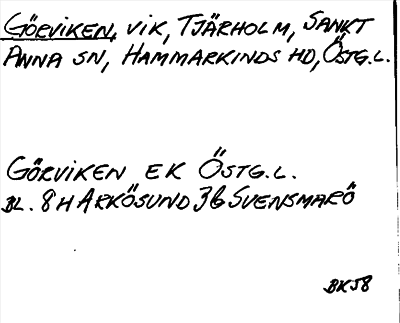 GÖRVIKEN, VIK, TJÄRHOLM, SANKT
ANNA SN, HAMMARKINDS HD, ÖSTG.L.
GÖRVIKEN EK ÖSTG.L.
BL. 8H ARKÖSUND 3G SVENSMARÖ
BK58